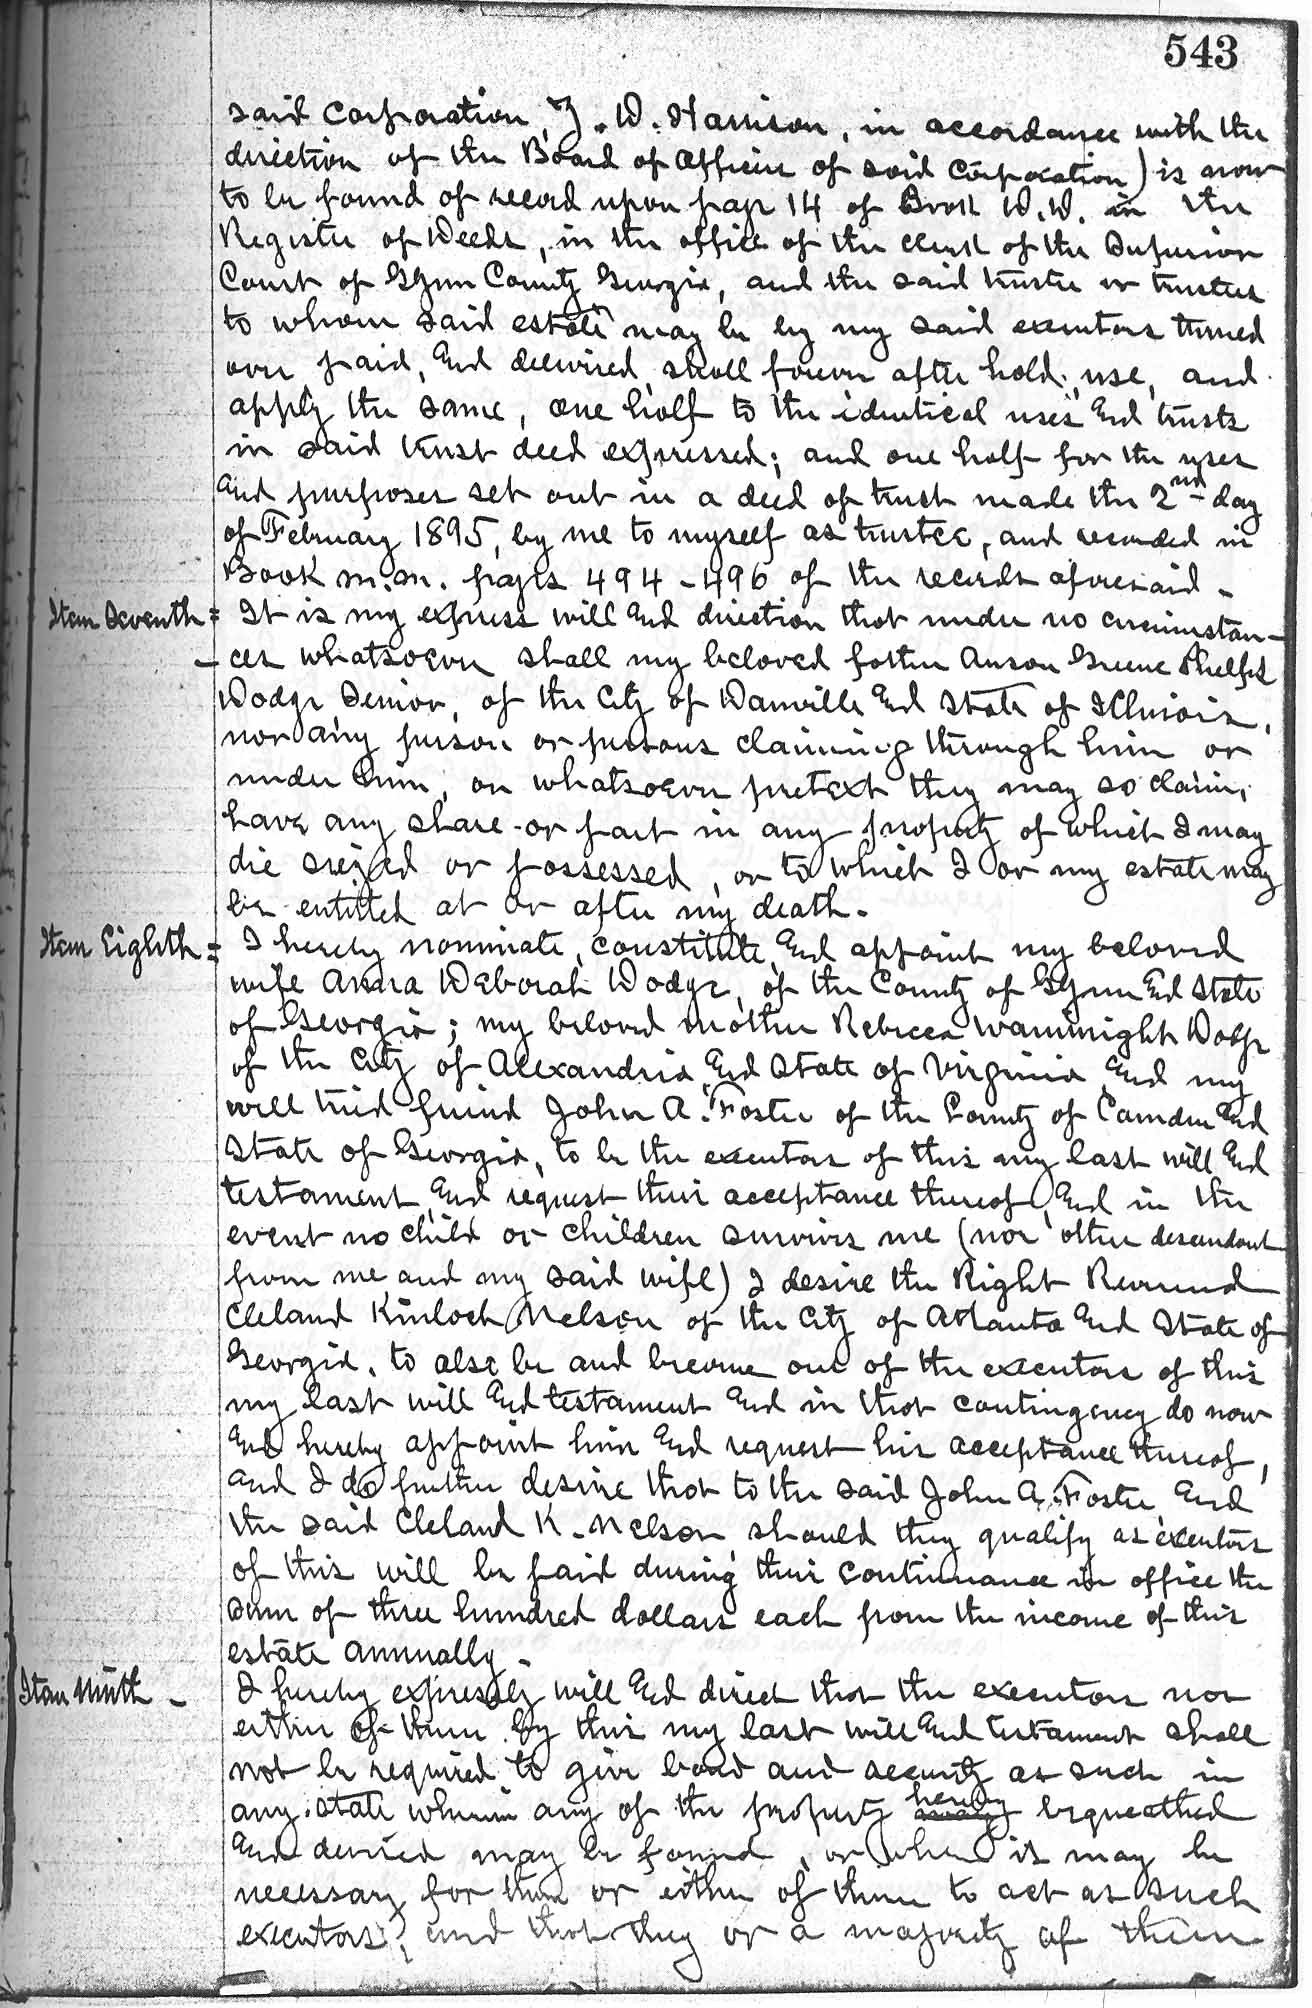 543
said Corporation, Z. W. Harrison, in accordance with the
direction of the Board of Officers of said Corporation) is now
to be found of record upon page 14 of Book W.W. in the
Register of Deeds, in the office of the clerk of the Superior
Court of Glynn County Georgia, and the said trustee or trustees
to whom said estate may be by my said executors turned
over paid, and delivered, shall forever after hold, use, and
apply the same, one half to the identical uses and trusts
in said trust deed expressed; and one half for the uses
and purposes set out in a deed of trust made the 2nd day
of February 1895, by me to myself as trustee, and recorded in
Book M.M. pages 494-496 of the records aforesaid -
Item Seventh = It is my express will and direction that under no circumstan-
-ces whatsoever shall my beloved father Anson Greene Phelps
Dodge Senior, of the City of Danville and State of Illinois,
nor any person or persons claiming through him or
under him, on whatsoever pretext they may so claim,
have any share or part in any property of which I may
die seized or possessed, or to which I or my estate may
be entitled at or after my death.
Item Eighth = I hereby nominate, constitute, and appoint my beloved
wife Anna Deborah Dodge, of the County of Glynn and State
of Georgia; my beloved mother Rebecca Wainwright Dodge
of the City of Alexandria and State of Virginia and my
well tried friend John A. Foster of the County of Camden and
State of Georgia, to be the executors of this my last will and
testament, and request their acceptance thereof, and in the
event no child or children survives me (nor other descendant
from me and my said wife) I desire the Right Reverend
Cleland Kinloch Nelson of the City of Atlanta and State of
Georgia, to also be and become one of the executors of this
my last will and testament and in that contingency do now
and hereby appoint him and request his acceptance thereof,
and I do further desire that to the said John A. Foster, and
the said Cleland K. Nelson, should they qualify as executors
of this will be paid during their continuance in office the
sum of three hundred dollars each from the income of this
estate annually -
Item Ninth - I hereby expressly will and direct that the executors nor
either of them by this my last will and testament shall
not be required to give bond and security as such in
any state wherein any of the property hereby bequeathed
and devised may be found, or where it may be
necessary for them or either of them to act as such
executors, and that they or a majority of them